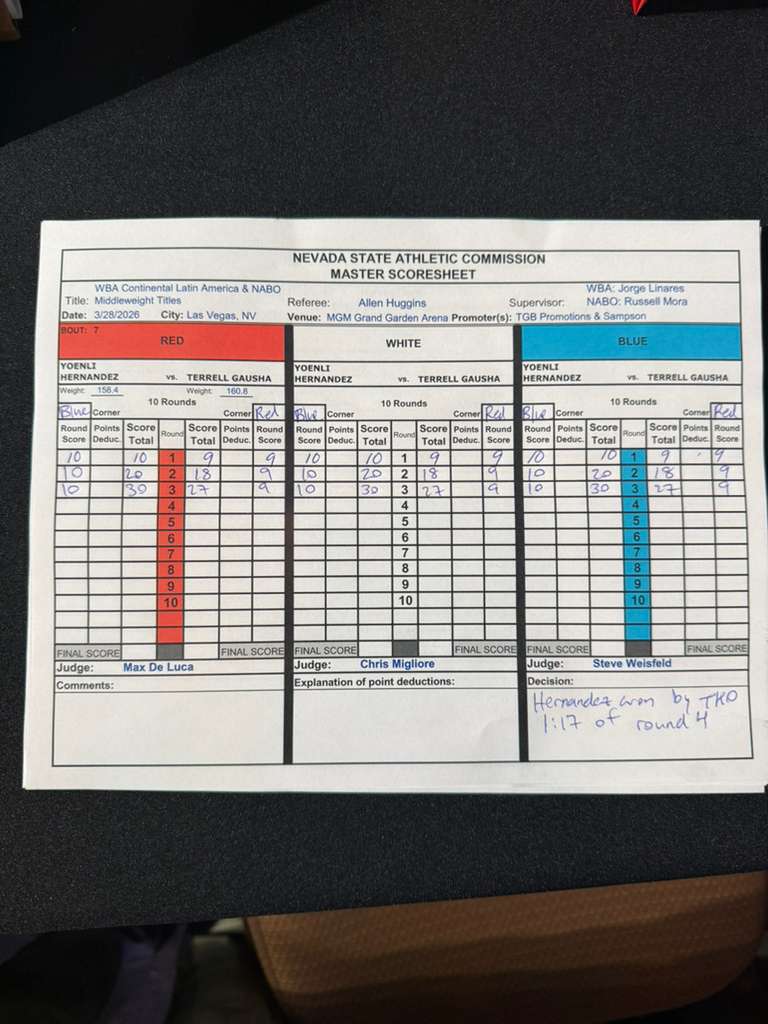 NEVADA STATE ATHLETIC COMMISSION
MASTER SCORESHEET
WBA Continental Latin America & NABO
Title: Middleweight Titles
Referee: Allen Huggins
Supervisor:
WBA: Jorge Linares
NABO: Russell Mora
Date: 3/28/2026 City: Las Vegas, NV Venue: MGM Grand Garden Arena Promoter(s): TGB Promotions & Sampson
BOUT: 7
RED
YOENLI
HERNANDEZ vs. TERRELL GAUSHA
Weight: 158.4 Weight: 160.8
10 Rounds
Blue Corner Corner Red
Round Score Points Deduc. Score Total Round Score Total Points Deduc. Round Score
10 10 1 9 9
10 20 2 18 9
10 30 3 27 9
4
5
6
7
8
9
10
FINAL SCORE FINAL SCORE
Judge: Max De Luca
Comments:
WHITE
YOENLI
HERNANDEZ vs. TERRELL GAUSHA
10 Rounds
Blue Corner Corner Red
Round Score Points Deduc. Score Total Round Score Total Points Deduc. Round Score
10 10 1 9 9
10 20 2 18 9
10 30 3 27 9
4
5
6
7
8
9
10
FINAL SCORE FINAL SCORE
Judge: Chris Migliore
Explanation of point deductions:
BLUE
YOENLI
HERNANDEZ vs. TERRELL GAUSHA
10 Rounds
Blue Corner Corner Red
Round Score Points Deduc. Score Total Round Score Total Points Deduc. Round Score
10 10 1 9 9
10 20 2 18 9
10 30 3 27 9
4
5
6
7
8
9
10
FINAL SCORE FINAL SCORE
Judge: Steve Weisfeld
Decision:
Hernandez won by TKO
1:17 of round 4